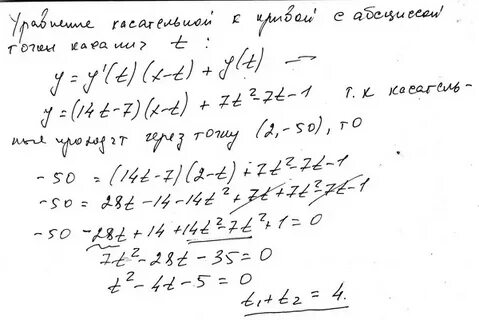 Уравнение касательной к кривой с абсциссой
точки касания t :
y = y'(t)(x-t) + y(t) —
y = (14t-7)(x-t) + 7t²-7t-1 т.к касатель-
ные проходят через точку (2,-50), то
-50 = (14t-7)(2-t) + 7t²-7t-1
-50 = 28t-14-14t²+7t+7t²-7t-1
-50 -28t+14+14t²-7t²+1=0
7t²-28t-35=0
t²-4t-5=0
t₁+t₂=4.